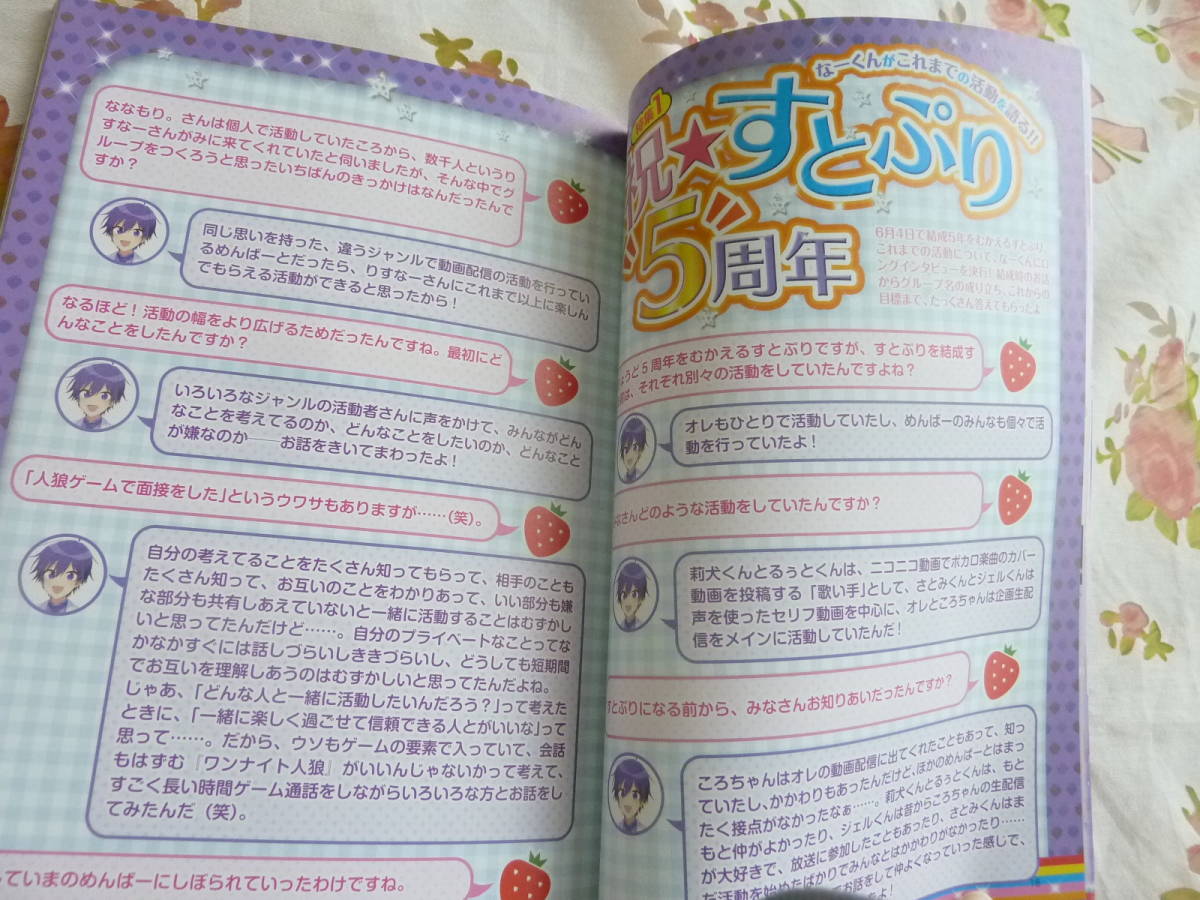 なーくんがこれまでの活動を語る!!
特集1
祝★すとぷり
5周年
6月4日で結成5年をむかえるすとぷり。
これまでの活動について、なーくんにロ
ングインタビューを決行!結成時のお話
からグループ名の成り立ち、これからの
目標まで、たっくさん答えてもらったよ
ょうど5周年をむかえるすとぷりですが、すとぷりを結成す
前は、それぞれ別々の活動をしていたんですよね?
オレもひとりで活動していたし、めんばーのみんなも個々で活
動を行っていたよ!
なさんどのような活動をしていたんですか?
莉犬くんとるぅとくんは、ニコニコ動画でボカロ楽曲のカバー
動画を投稿する「歌い手」として、さとみくんとジェルくんは
声を使ったセリフ動画を中心に、オレところちゃんは企画生配
信をメインに活動していたんだ!
すとぷりになる前から、みなさんお知りあいだったんですか?
ころちゃんはオレの動画配信に出てくれたこともあって、知っ
ていたし、かかわりもあったんだけど、ほかのめんばーとはまっ
たく接点がなかったなぁ……。莉犬くんとるぅとくんは、もと
もと仲がよかったり、ジェルくんは昔からころちゃんの生配信
が大好きで、放送に参加したこともあったり、さとみくんはま
だ活動を始めたばかりでみんなとはかかわりがなかったり……
お話をして仲よくなっていった感じで、
よ!
ななもり。さんは個人で活動していたころから、数千人というり
すなーさんがみに来てくれていたと伺いましたが、そんな中でグ
ループをつくろうと思ったいちばんのきっかけはなんだったんで
すか?
同じ思いを持った、違うジャンルで動画配信の活動を行ってい
るめんばーとだったら、りすなーさんにこれまで以上に楽しん
でもらえる活動ができると思ったから!
なるほど!活動の幅をより広げるためだったんですね。最初にど
んなことをしたんですか?
いろいろなジャンルの活動者さんに声をかけて、みんながどん
なことを考えてるのか、どんなことをしたいのか、どんなこと
が嫌なのか――お話をきいてまわったよ!
「人狼ゲームで面接をした」というウワサもありますが……(笑)。
自分の考えてることをたくさん知ってもらって、相手のことも
たくさん知って、お互いのことをわかりあって、いい部分も嫌
な部分も共有しあえていないと一緒に活動することはむずかし
いと思ってたんだけど……。自分のプライベートなことってな
かなかすぐには話しづらいしききづらいし、どうしても短期間
でお互いを理解しあうのはむずかしいと思ってたんだよね。
じゃあ、「どんな人と一緒に活動したいんだろう?」って考えた
ときに、「一緒に楽しく過ごせて信頼できる人とがいいな」って
思って……。だから、ウソもゲームの要素で入っていて、会話
もはずむ『ワンナイト人狼』がいいんじゃないかって考えて、
すごく長い時間ゲーム通話をしながらいろいろな方とお話をし
てみたんだ(笑)。
していまのめんばーにしぼられていったわけですね。